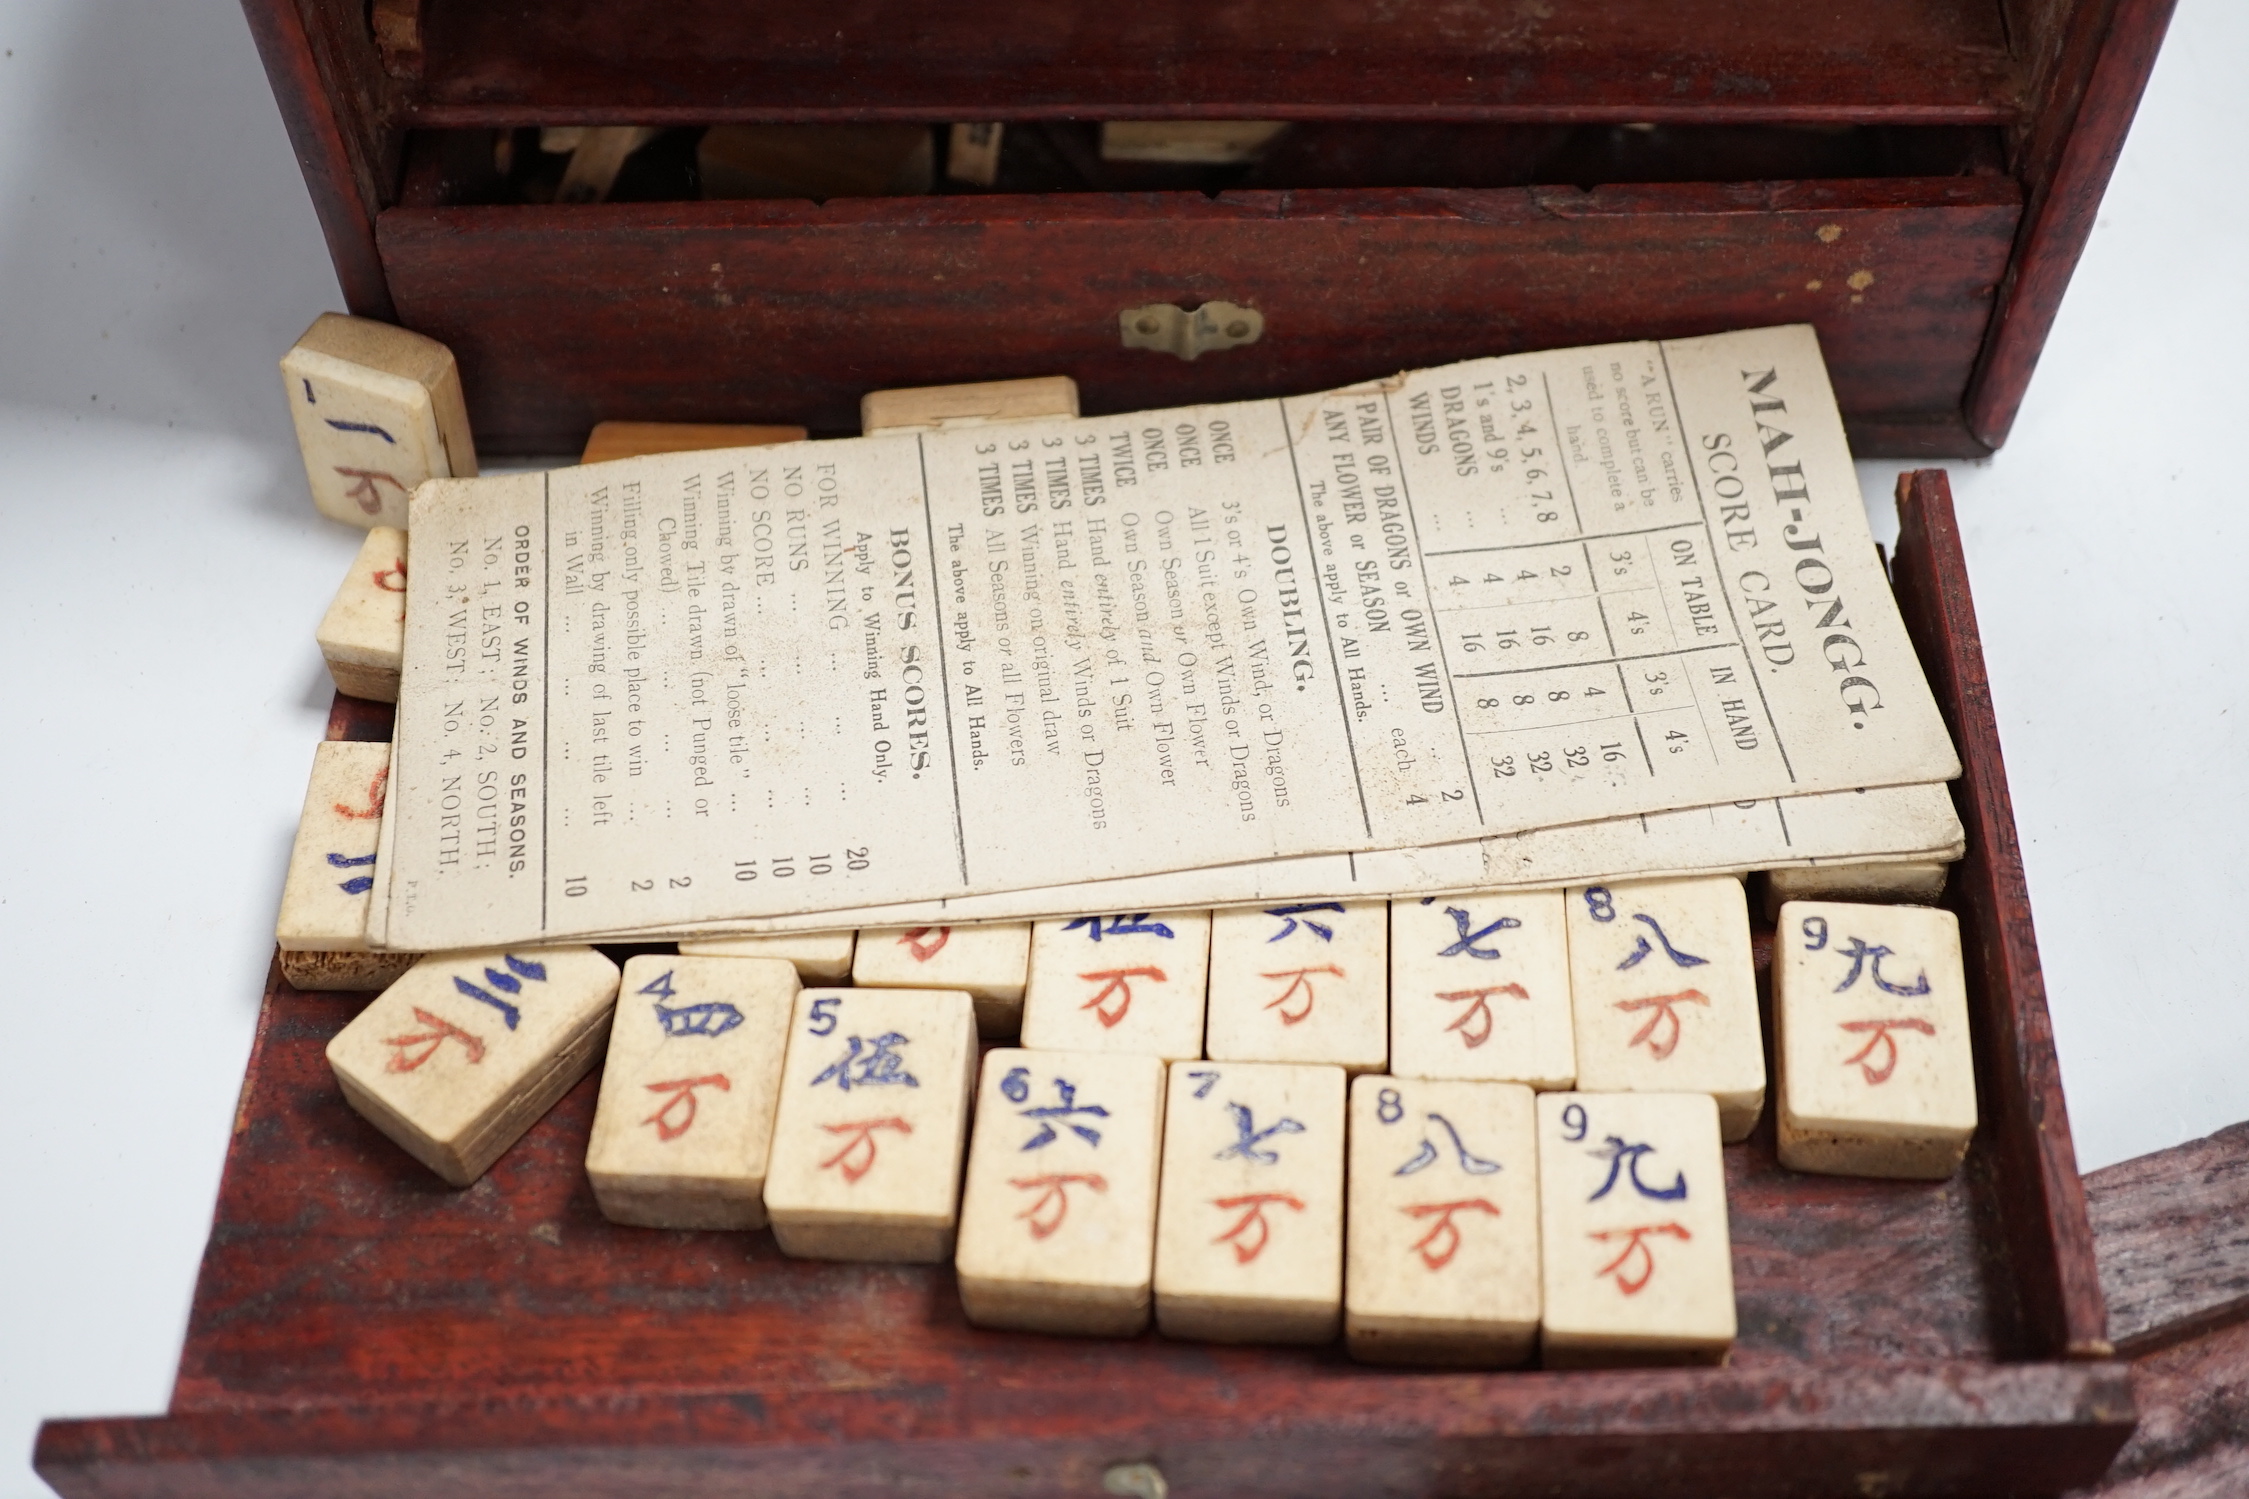 MAH-JONGG.
SCORE CARD.
"A RUN" carries
no score but can be
used to complete a
hand.
ON TABLE IN HAND
3's 4's 3's 4's
2, 3, 4, 5, 6, 7, 8 ... 2 8 4 16
1's and 9's ... 4 16 8 32
DRAGONS ... 4 16 8 32
WINDS ... 4 16 8 32
PAIR OF DRAGONS or OWN WIND ... 2
ANY FLOWER or SEASON .... each 4
The above apply to All Hands.
DOUBLING.
ONCE 3's or 4's Own Wind, or Dragons
ONCE All 1 Suit except Winds or Dragons
ONCE Own Season or Own Flower
TWICE Own Season and Own Flower
3 TIMES Hand entirely of 1 Suit
3 TIMES Hand entirely Winds or Dragons
3 TIMES Winning on original draw
3 TIMES All Seasons or all Flowers
The above apply to All Hands.
BONUS SCORES.
Apply to Winning Hand Only.
FOR WINNING ... ... ... 20
NO RUNS ... ... ... ... 10
NO SCORE ... ... ... ... 10
Winning by drawn of "loose tile" ... 10
Winning Tile drawn (not Punged or
Chowed) ... ... ... ... 2
Filling only possible place to win ... 2
Winning by drawing of last tile left
in Wall ... ... ... ... 10
ORDER OF WINDS AND SEASONS.
No. 1, EAST; No. 2, SOUTH;
No. 3, WEST; No. 4, NORTH.
P.T.O.
伍 万
六 万
七 万
8 八 万
9 九 万
三 万
4 四 万
5 伍 万
6 六 万
7 七 万
8 八 万
9 九 万